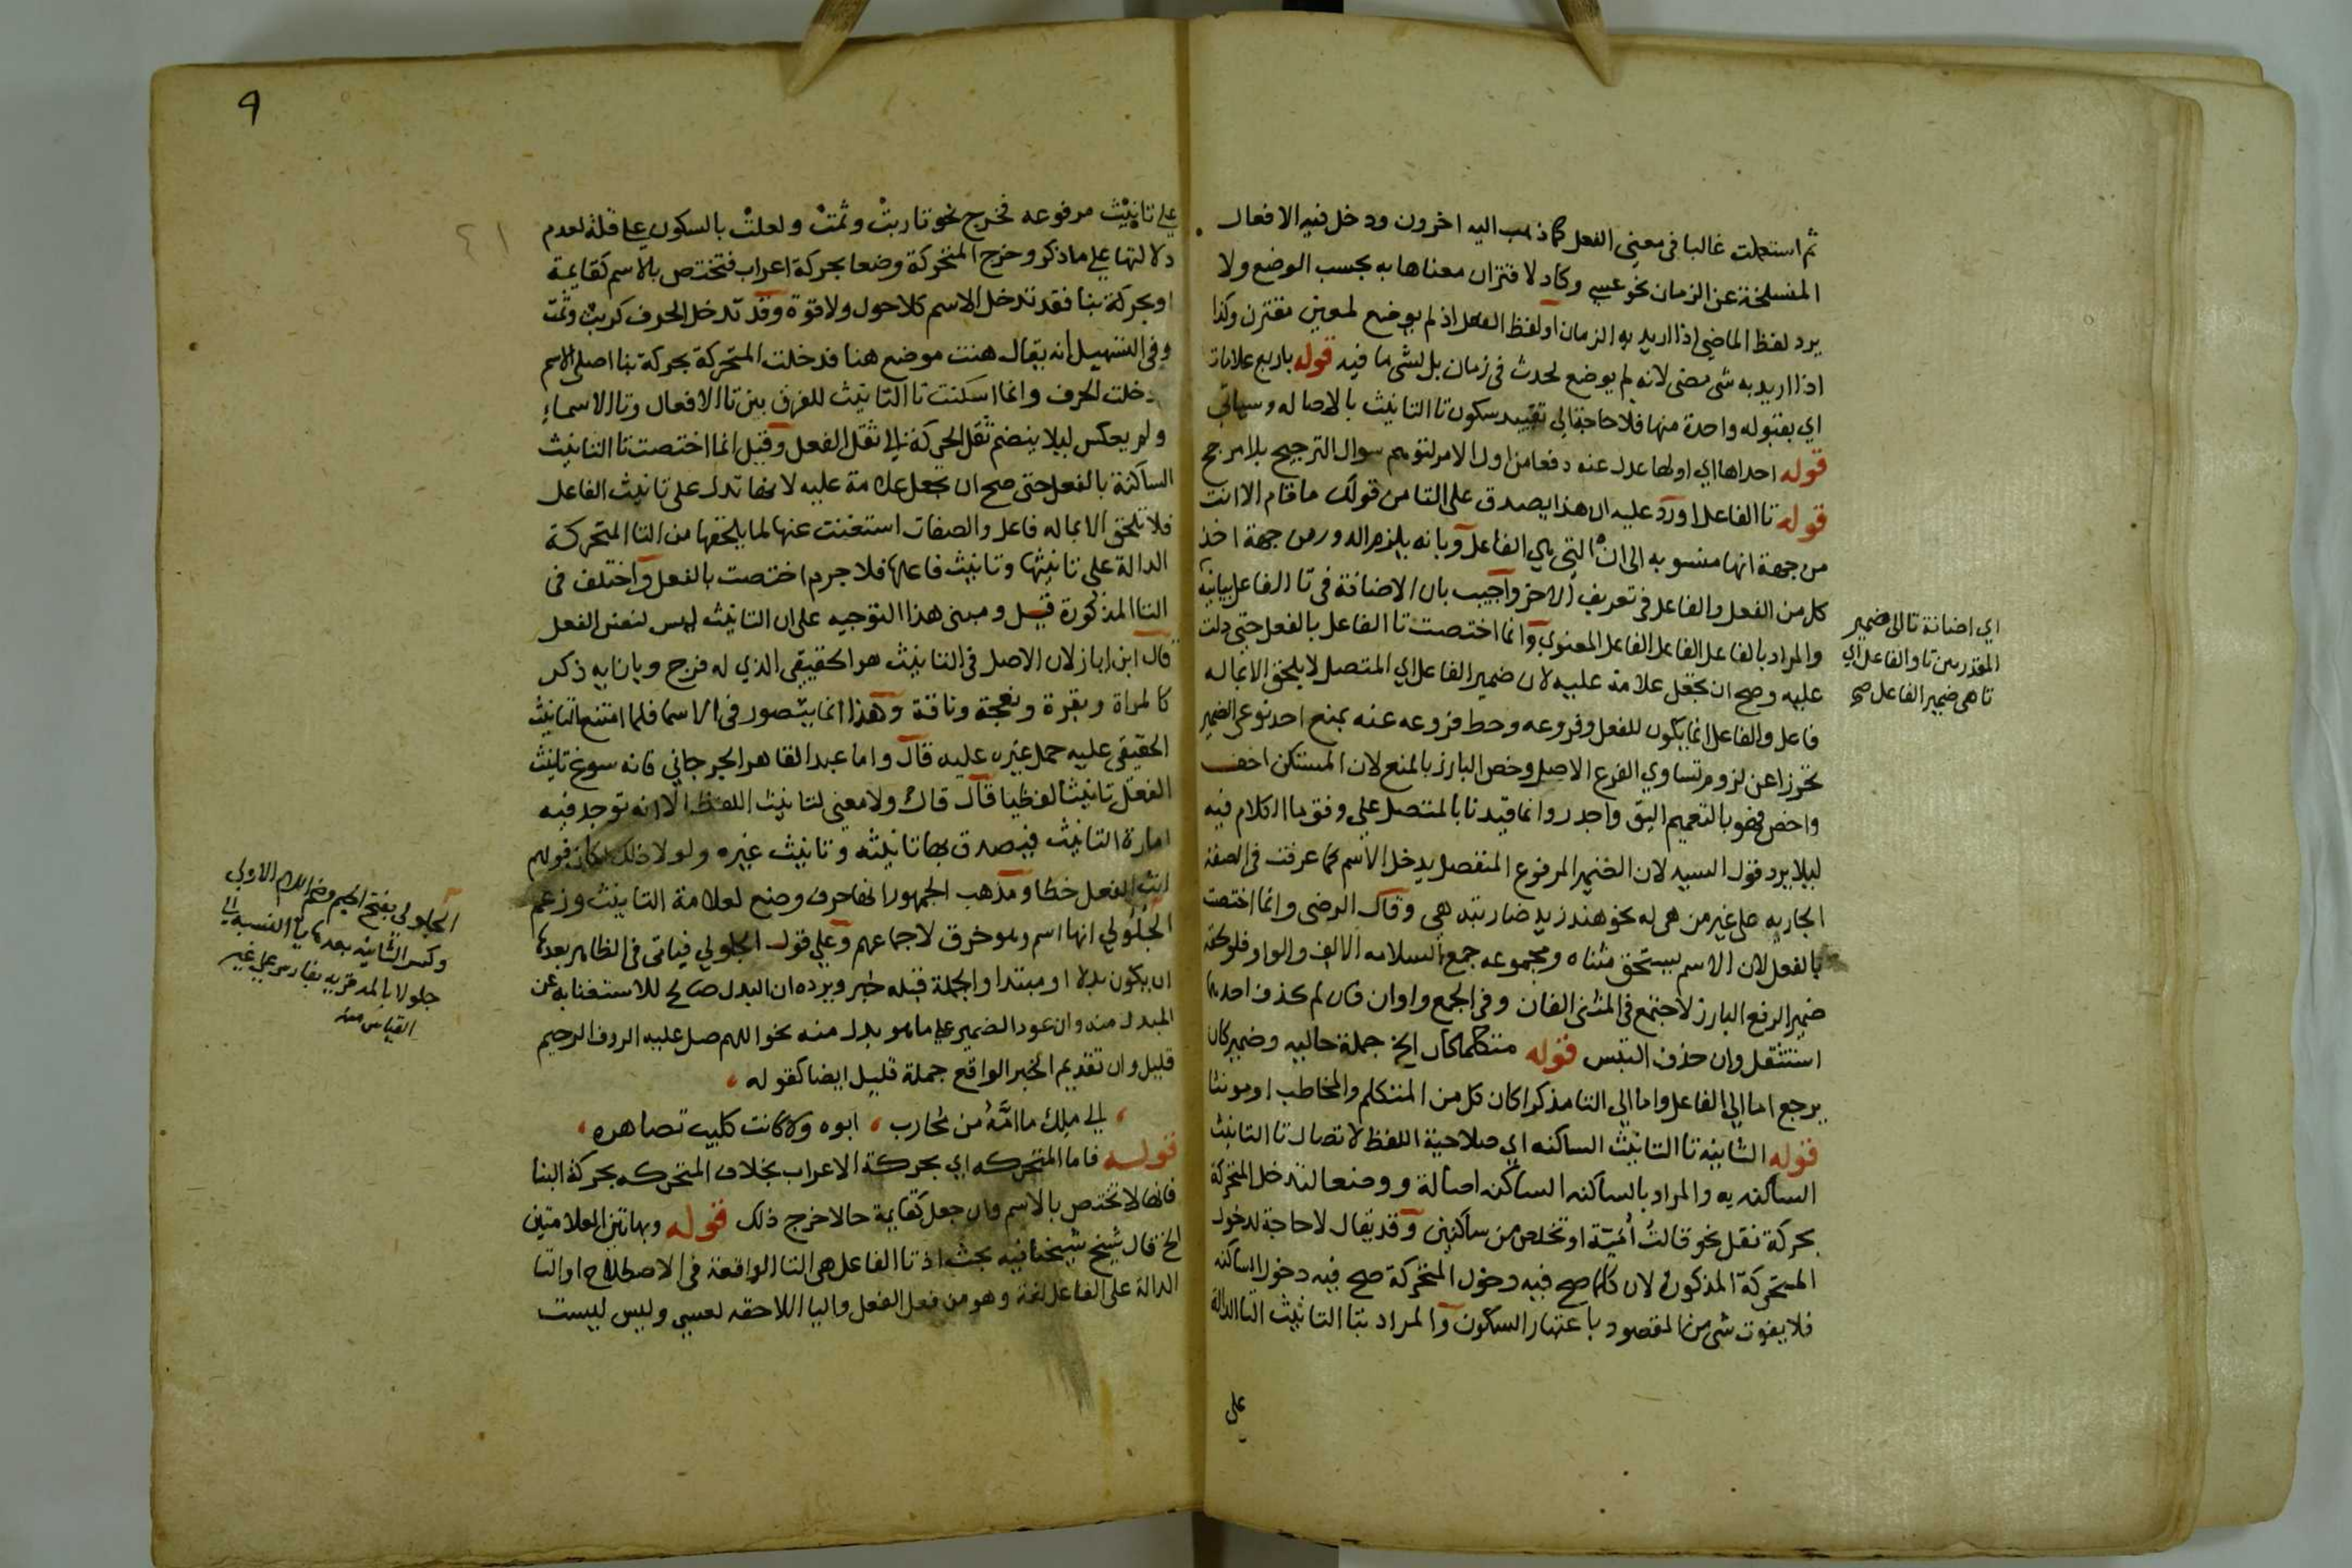 ثم استعملت غالبا في معنى الفعل كما ذهب اليه اخرون ودخل فيه الافعال
المنسلخة عن الزمان نحو عسى وكاد لاقتران معناها به بحسب الوضع ولا
يرد لفظ الماضي اذا اريد به الزمان او لفظ الفعل اذ لم يوضع لمعنى مقترن وكذا
اذا اريد به شي مضى لانه لم يوضع لحدث في زمان بل لشي ما فيه قوله باربع علامات
اي بقبوله واحدة منها فلا حاجة الى تقييد سكون تا التانيث بالاصاله وسياتي
قوله احداها اي اولها عدل عنه دفعا من اول الامر لتوهم سوال الترجيح بلا مرجح
قوله تا الفاعل اورد عليه ان هذا يصدق على التا من قولك ما قام الا انت
من جهة انها منسوبه الى ان التي هي الفاعل وبانه يلزم الدور من جهة اخذ
كل من الفعل والفاعل في تعريف الاخر واجيب بان الاضافة في تا الفاعل بيانية
والمراد بالفاعل الفاعل المعنوي وانما اختصت تا الفاعل بالفعل حتى دلت
عليه وصح ان تجعل علامة عليه لان ضمير الفاعل اي المتصل لا يلحق الا بما له
فاعل والفاعل انما يكون للفعل وفروعه وحط فروعه عنه بمنع احد نوعي الضمير
تحرزا عن لزوم تساوي الفرع الاصل وخص البارز بالمنع لان المستكن اخف
واخصر فهو بالتعميم اليق واجدر وانما قيدنا بالمتصل على وفق ما الكلام فيه
ليلا يرد قول السيد لان الضمير المرفوع المنفصل يدخل الاسم كما عرفت في الصفة
الجاريه على غير من هي له نحو هند زيد ضاربته هي وقال الرضى وانما اختصت
بالفعل لان الاسم يستحق مثناه ومجموعه جمع السلامه الالف والواو فلو لحقه
ضمير الرفع البارز لاجتمع في المثنى الفان وفي الجمع واوان فان لم يحذف احدهما
استثقل وان حذف التبس قوله متكلما كان الخ جملة حاليه وضمير كان
يرجع اما الى الفاعل واما الى التا مذكرا كان كل من المتكلم والمخاطب او مونثا
قوله الثانيه تا التانيث الساكنه اي صلاحية اللفظ لاتصال تا التانيث
الساكنه به والمراد بالساكنه الساكن اصالة ووضعا لتدخل المتحركة
بحركة نقل نحو قالت أمّة او تخلص من ساكنين وقد يقال لا حاجة لدخول
المتحركة المذكورة لان كلما صح فيه دخول المتحركة صح فيه دخول الساكنه
فلا يفوت شي من المقصود باعتبار السكون والمراد بتا التانيث التا الدالة
على
اي اضافة تا الى ضمير
تا هي ضمير الفاعل صح
9
على تانيث مرفوعه فخرج نحو تا ربت وثمت ولعلت بالسكون على قلة لعدم
دلالتها على ما ذكر وخرج المتحركة وضعا بحركة اعراب فتختص بالاسم كقايمة
او بحركة بنا فقد تدخل الاسم كلا حول ولا قوة وقد تدخل الحرف كربت وثمت
وفي التسهيل انه يقال هنت موضع هنا فدخلت المتحركة بحركة بنا اصلى الاسم
دخلت الحرف وانما اسكنت تا التانيث للفرق بين تا الافعال وتا الاسماء
ولم يعكس ليلا ينضم ثقل الحركة الى ثقل الفعل وقيل انما اختصت تا التانيث
الساكنة بالفعل حتى صح ان يجعل علامة عليه لانها تدل على تانيث الفاعل
فلا تلحق الا بماله فاعل والصفات استغنت عنها لما يلحقها من التا المتحركة
الدالة على تانيثها وتانيث فاعلها فلا جرم اختصت بالفعل واختلف في
التا المذكورة قيل ومبنى هذا التوجيه على ان التانيث ليس لنفس الفعل
قال ابن اياز لان الاصل في التانيث هو الحقيقي الذي له فرج وبازايه ذكر
كالمراة وبقرة ونعجة وناقة وهذا انما يتصور في الاسما فلما امتنع التانيث
الحقيقي عليه حمل غيره عليه قال واما عبد القاهر الجرجاني فانه سوغ تانيث
الفعل تانيثا لفظيا قال قال ولا معنى لتانيث اللفظ الا انه توجد فيه
امارة التانيث فيصدق بها تانيثه وتانيث غيره ولولا ذلك لكان قولهم
انث الفعل خطا ومذهب الجمهور انها حرف وضع لعلامة التانيث وزعم
الجلولي انها اسم وهو خرق لاجماعهم وعلى قول الجلولي فياتي في الظاهر بعدها
ان يكون بدلا او مبتدا والجملة قبله خبر ويرده ان البدل صالح للاستغنا به عن
المبدل منه وان عود الضمير على ما هو بدل منه نحو اللهم صل عليه الروف الرحيم
قليل وان تقديم الخبر الواقع جملة قليل ايضا كقوله
الى ملك ما امه من محارب ، ابوه ولا كانت كليب تصاهره
قوله فاما المتحركه اي بحركة الاعراب بخلاف المتحركه بحركة البنا
فانها لا تختص بالاسم وان جعل كقايمة حالا خرج ذلك قوله وبهاتين العلامتين
الخ قال شيخ شيخنا فيه بحث اذ تا الفاعل هي التا الواقعة في الاصطلاح او التا
الدالة على الفاعل لغة وهو من فعل الفعل والتا اللاحقه لعسى وليس ليست
الجلولي بفتح الجيم وضم اللام الاولى
وكسر الثانيه بعدها يا النسبة الى
جلولا بالمد قرية بفارس على غير
القياس منه